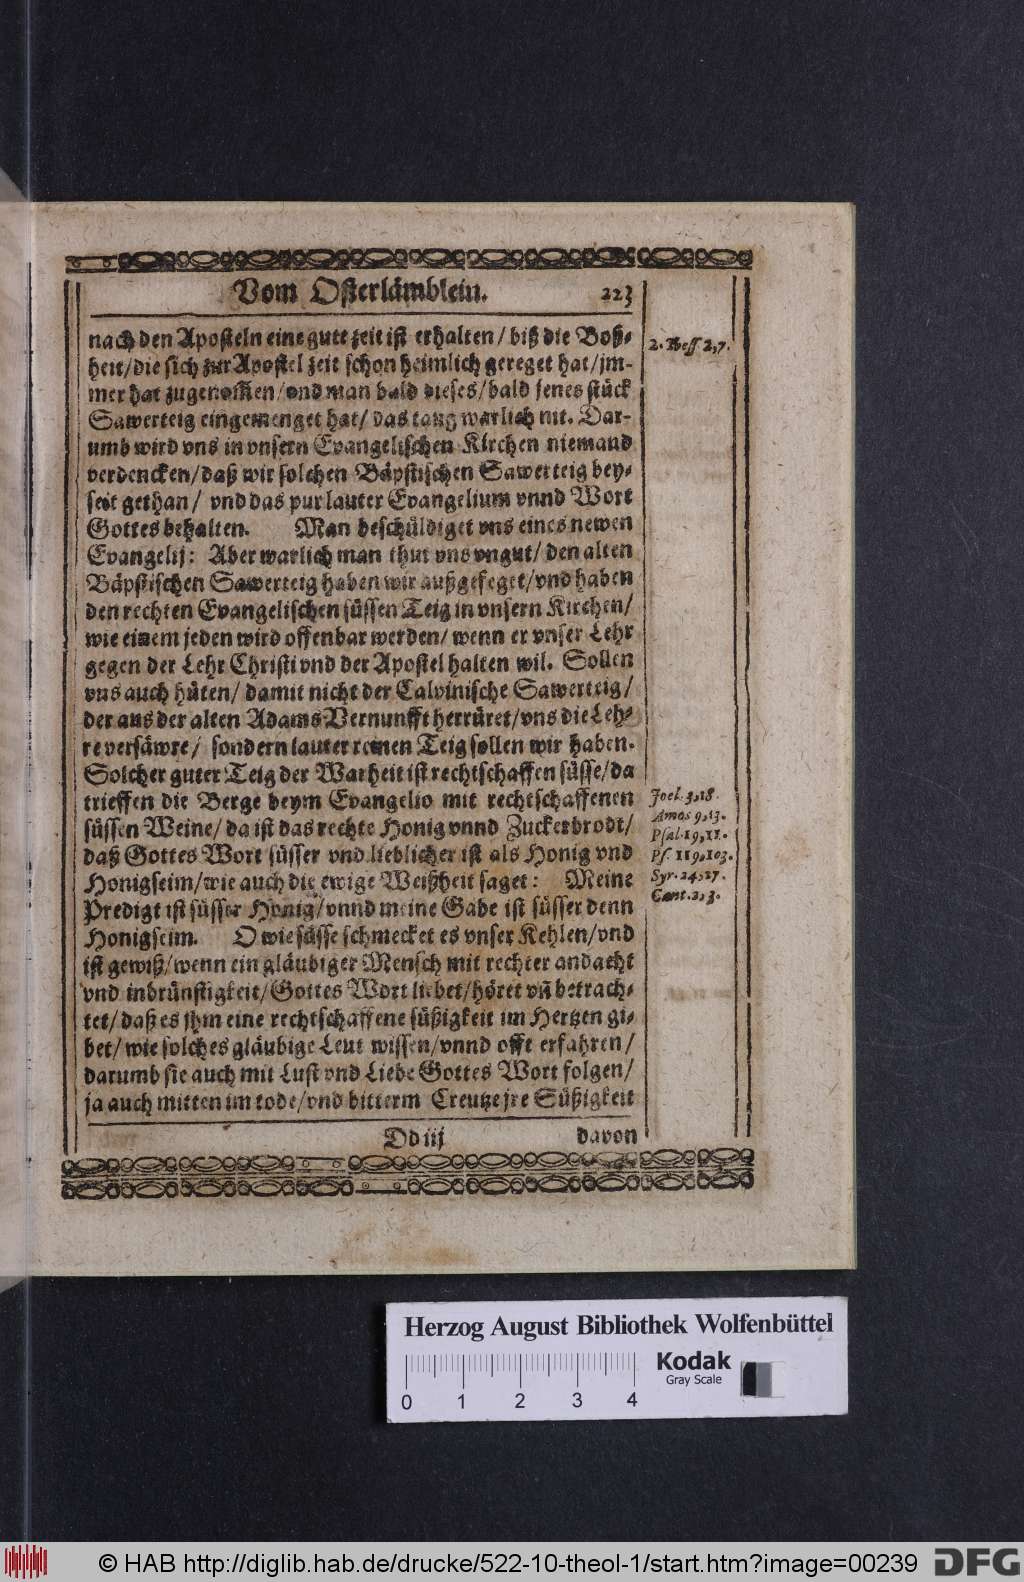 Vom Osterlämblein. 223
nach den Aposteln eine gute zeit ist erhalten / biß die Boß-
heit / die sich zur Apostel zeit schon heimlich gereget hat / jm-
mer hat zugenom̃en / vnd man bald dieses / bald jenes stück
Sawerteig eingemenget hat / das taug warlich nit. Dar-
umb wird vns in vnsern Evangelischen Kirchen niemand
verdencken / daß wir solchen Bäpstischen Sawerteig bey-
seit gethan / vnd das pur lauter Evangelium vnnd Wort
Gottes behalten. Man beschüldiget vns eines newen
Evangelij: Aber warlich man thut vns vngut / den alten
Bäpstischen Sawerteig haben wir außgefeget / vnd haben
den rechten Evangelischen süssen Teig in vnsern Kirchen /
wie einem jeden wird offenbar werden / wenn er vnser Lehr
gegen der Lehr Christi vnd der Apostel halten wil. Sollen
vns auch hüten / damit nicht der Calvinische Sawerteig /
der aus der alten Adams Vernunfft herrüret / vns die Leh-
re versäwre / sondern lauter reinen Teig sollen wir haben.
Solcher guter Teig der Warheit ist rechtschaffen süsse / da
trieffen die Berge beym Evangelio mit rechtschaffenen
süssen Weine / da ist das rechte Honig vnnd Zuckerbrodt /
daß Gottes Wort süsser vnd lieblicher ist als Honig vnd
Honigseim / wie auch die ewige Weißheit saget: Meine
Predigt ist süsser Honig / vnnd meine Gabe ist süsser denn
Honigseim. O wie süsse schmecket es vnser Kehlen / vnd
ist gewiß / wenn ein gläubiger Mensch mit rechter andacht
vnd inbrünstigkeit / Gottes Wort liebet / höret vñ betrach-
tet / daß es jhm eine rechtschaffene süßigkeit im Hertzen gi-
bet / wie solches gläubige Leut wissen / vnnd offt erfahren /
darumb sie auch mit Lust vnd Liebe Gottes Wort folgen /
ja auch mitten im tode / vnd bitterm Creutze jre Süßigkeit
Dd iij davon
2. Thess 2,7.
Joel. 3,18.
Amos 9,13.
Psal. 19,11.
Ps. 119,103.
Syr. 24,27.
Cant. 2,3.
Herzog August Bibliothek Wolfenbüttel
Kodak
Gray Scale
0 1 2 3 4
© HAB http://diglib.hab.de/drucke/522-10-theol-1/start.htm?image=00239
DFG